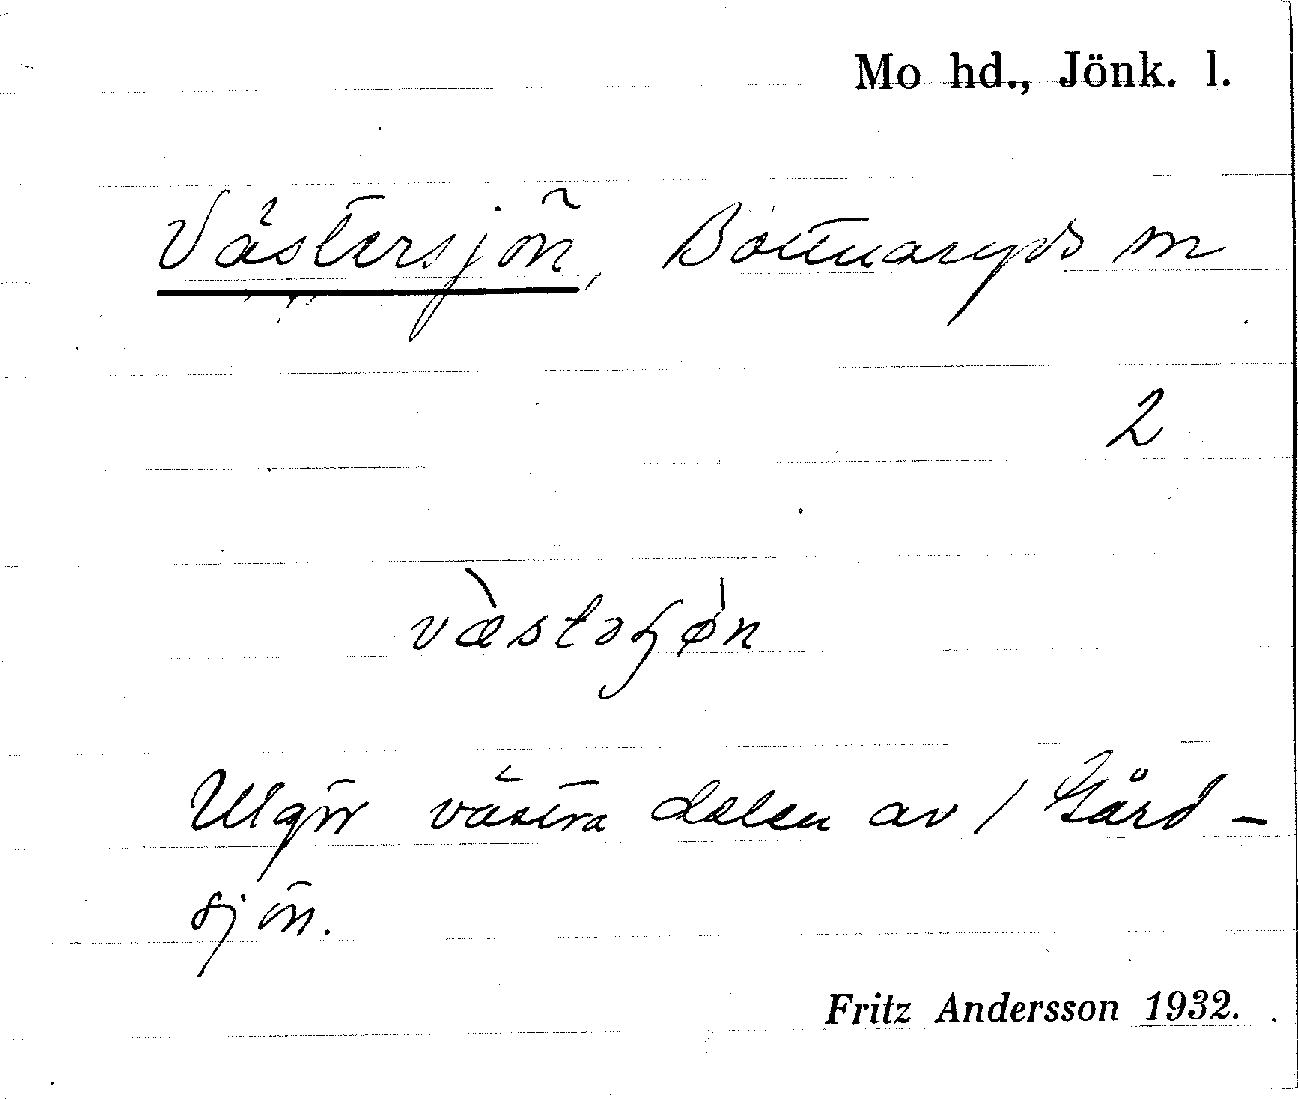 Mo hd., Jönk. l.
Västersjön, Bottnaryds sn
2
væ̀stəɧø̀n
Utgör västra delen av / Gård-
sjön.
Fritz Andersson 1932.